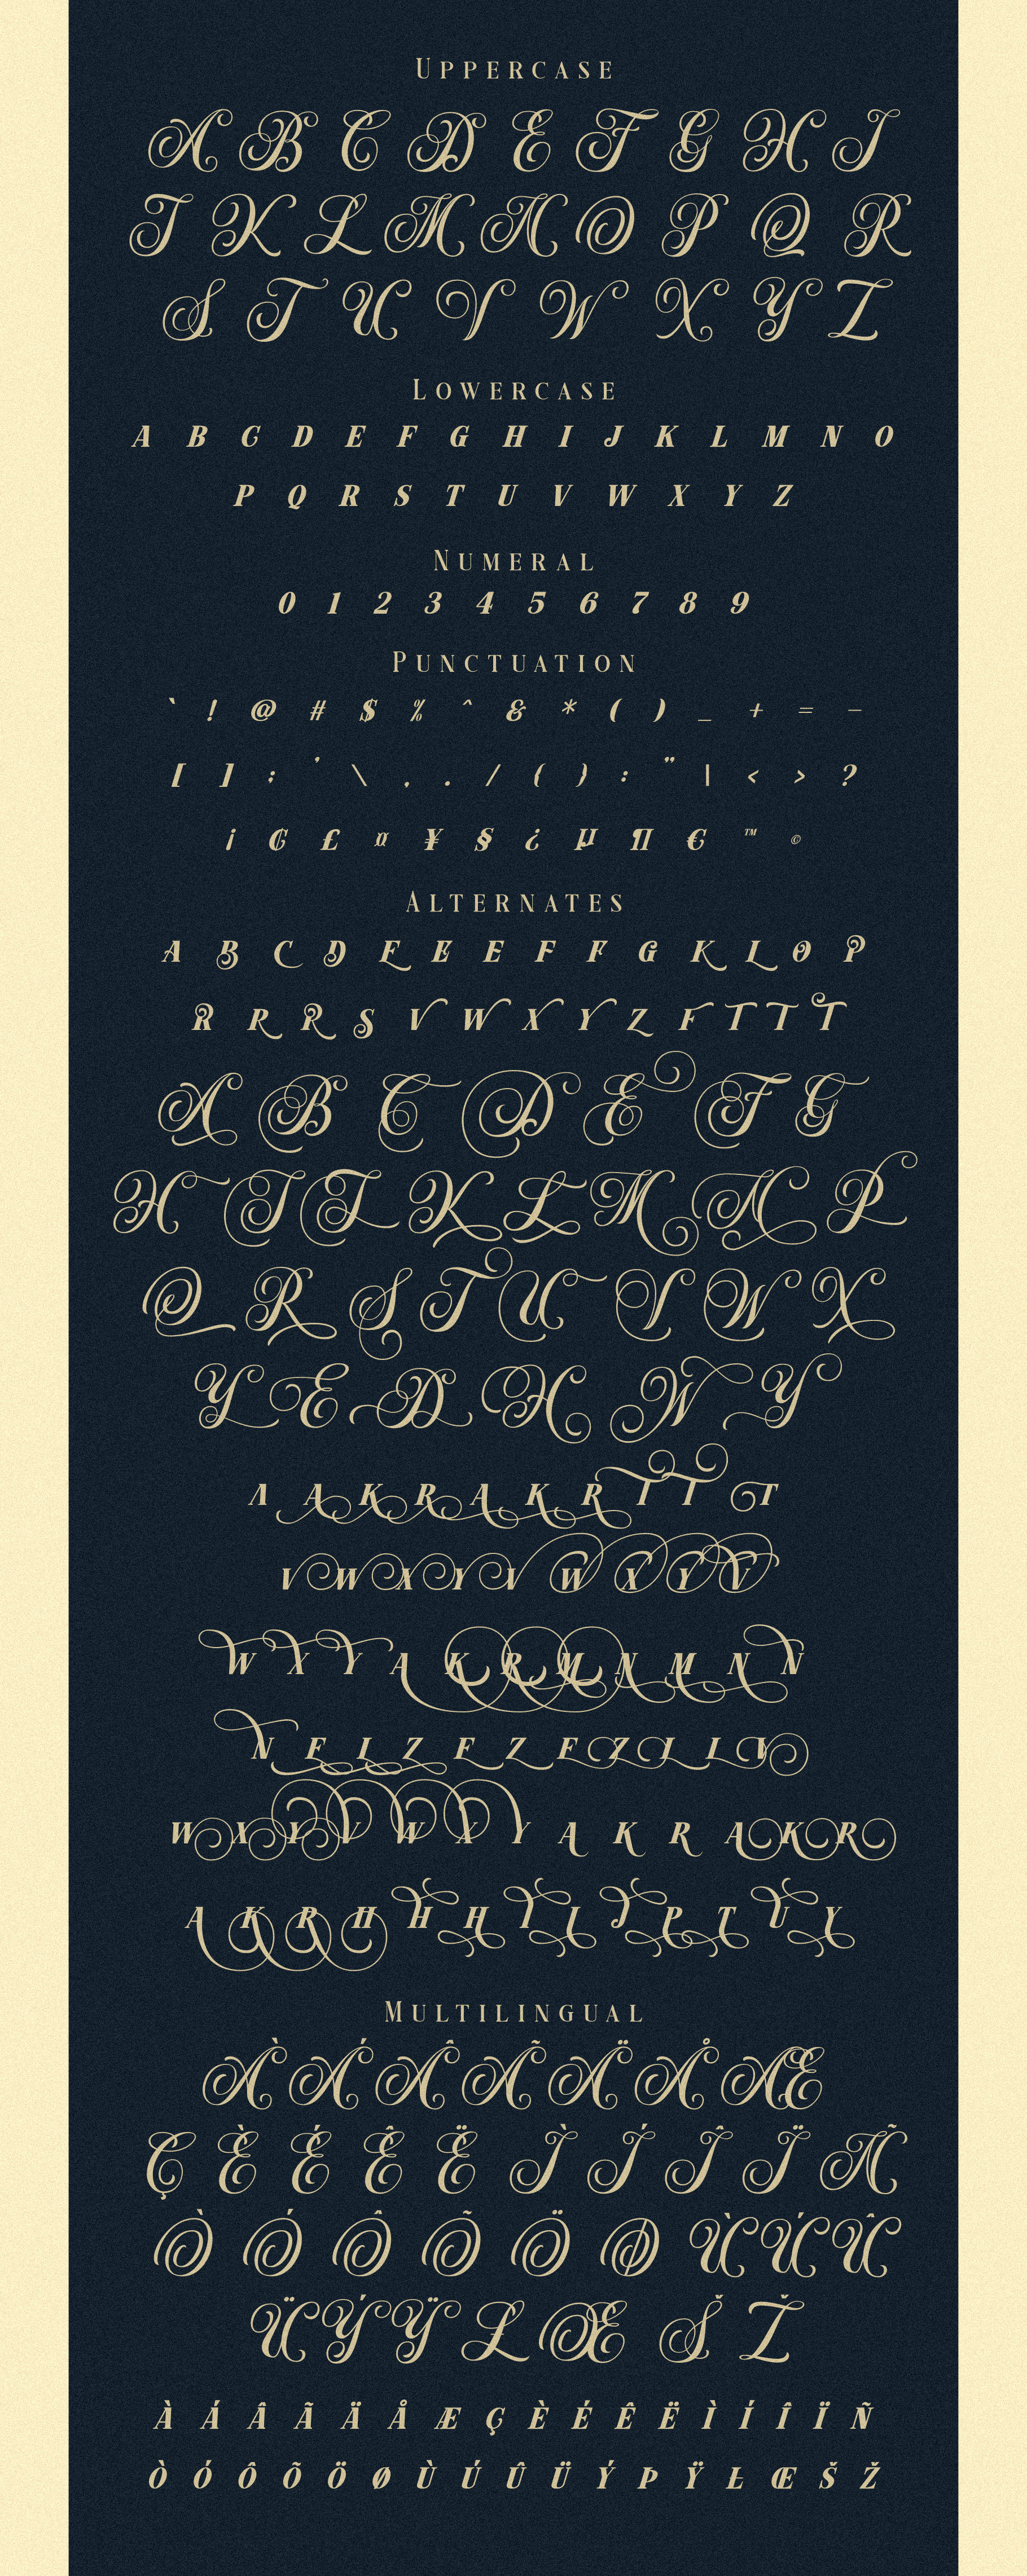 UPPERCASE
A B C D E F G H I
J K L M N O P Q R
S T U V W X Y Z
LOWERCASE
A B C D E F G H I J K L M N O
P Q R S T U V W X Y Z
NUMERAL
0 1 2 3 4 5 6 7 8 9
PUNCTUATION
` ! @ # $ % ^ & * ( ) _ + = –
[ ] ; ' \ , . / { } : " | < > ?
¡ ₵ £ ¤ ¥ § ¿ µ ¶ € ™ ©
ALTERNATES
A B C D E E E F F G K L O P
R R R S V W X Y Z F T T T
A B C D E F G
H I J K L M N P
Q R S T U V W X
Y E D H W Y
A A K R A K R T T T
V W X Y V W X Y V
W X Y A K R M N M N N
N E L Z E Z E Z L L V
W X Y V W X Y A K R A K R
A K R H H H I I J P T U Y
MULTILINGUAL
À Á Â Ã Ä Å Æ
Ç È É Ê Ë Ì Í Î Ï Ñ
Ò Ó Ô Õ Ö Ø Ù Ú Û
Ü Ý Ÿ Ł Œ Š Ž
À Á Â Ã Ä Å Æ Ç È É Ê Ë Ì Í Î Ï Ñ
Ò Ó Ô Õ Ö Ø Ù Ú Û Ü Ý Þ Ÿ Ł Œ Š Ž